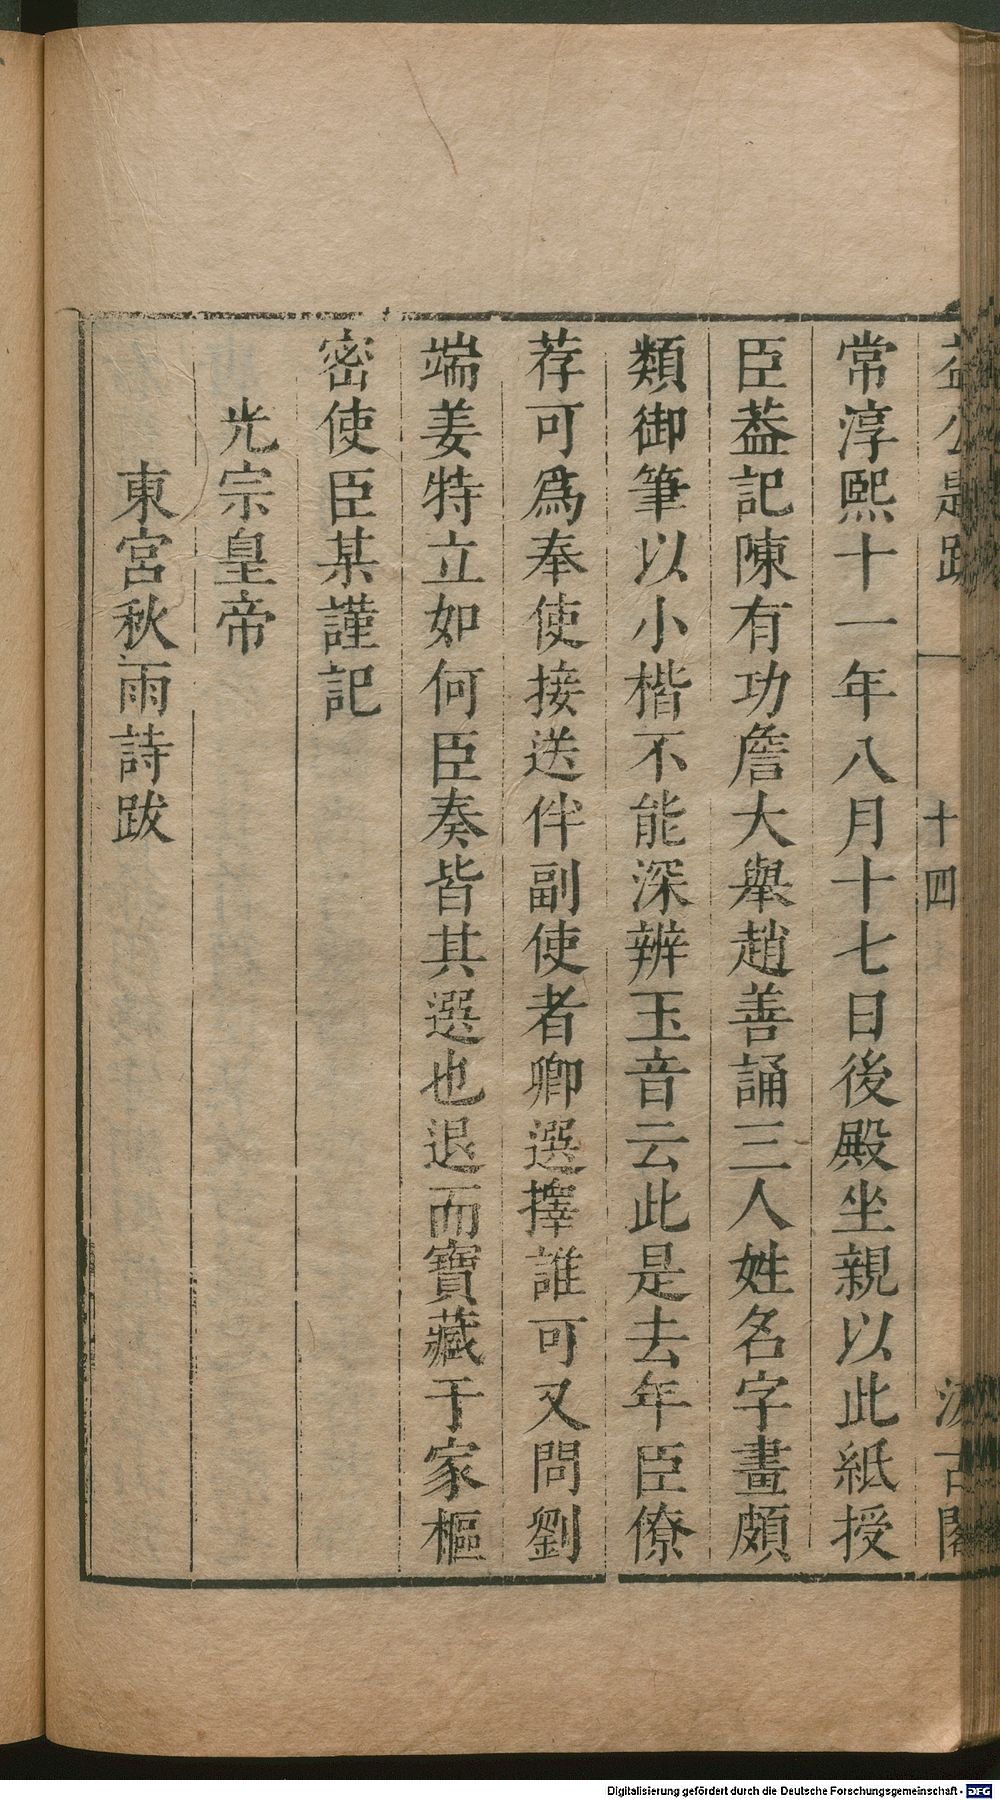 益公題跋 一 十四 汲古閣
常淳熙十一年八月十七日後殿坐親以此紙授
臣葢記陳有功詹大舉趙善誦三人姓名字畫頗
類御筆以小楷不能深辨玉音云此是去年臣僚
荐可爲奉使接送伴副使者卿選擇誰可又問劉
端姜特立如何臣奏皆其選也退而寶藏于家樞
密使臣某謹記
光宗皇帝
東宮秋雨詩跋
Digitalisierung gefördert durch die Deutsche Forschungsgemeinschaft - DFG